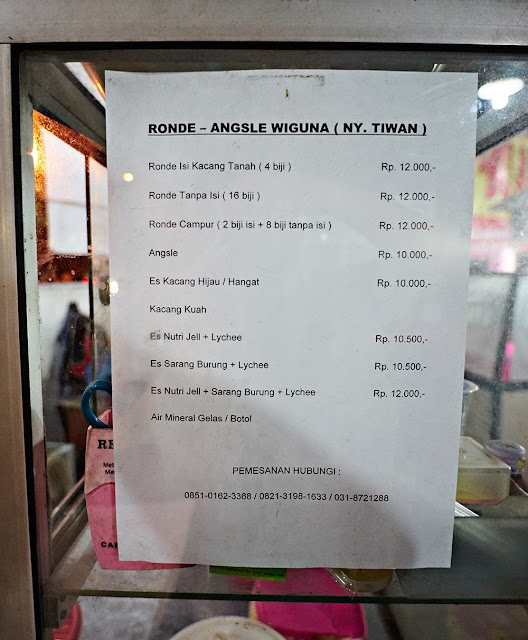 RONDE – ANGSLE WIGUNA ( NY. TIWAN )
Ronde Isi Kacang Tanah ( 4 biji ) Rp. 12.000,-
Ronde Tanpa Isi ( 16 biji ) Rp. 12.000,-
Ronde Campur ( 2 biji isi + 8 biji tanpa isi ) Rp. 12.000,-
Angsle Rp. 10.000,-
Es Kacang Hijau / Hangat Rp. 10.000,-
Kacang Kuah
Es Nutri Jell + Lychee Rp. 10.500,-
Es Sarang Burung + Lychee Rp. 10.500,-
Es Nutri Jell + Sarang Burung + Lychee Rp. 12.000,-
Air Mineral Gelas / Botol
PEMESANAN HUBUNGI :
0851-0162-3368 / 0821-3198-1633 / 031-8721288